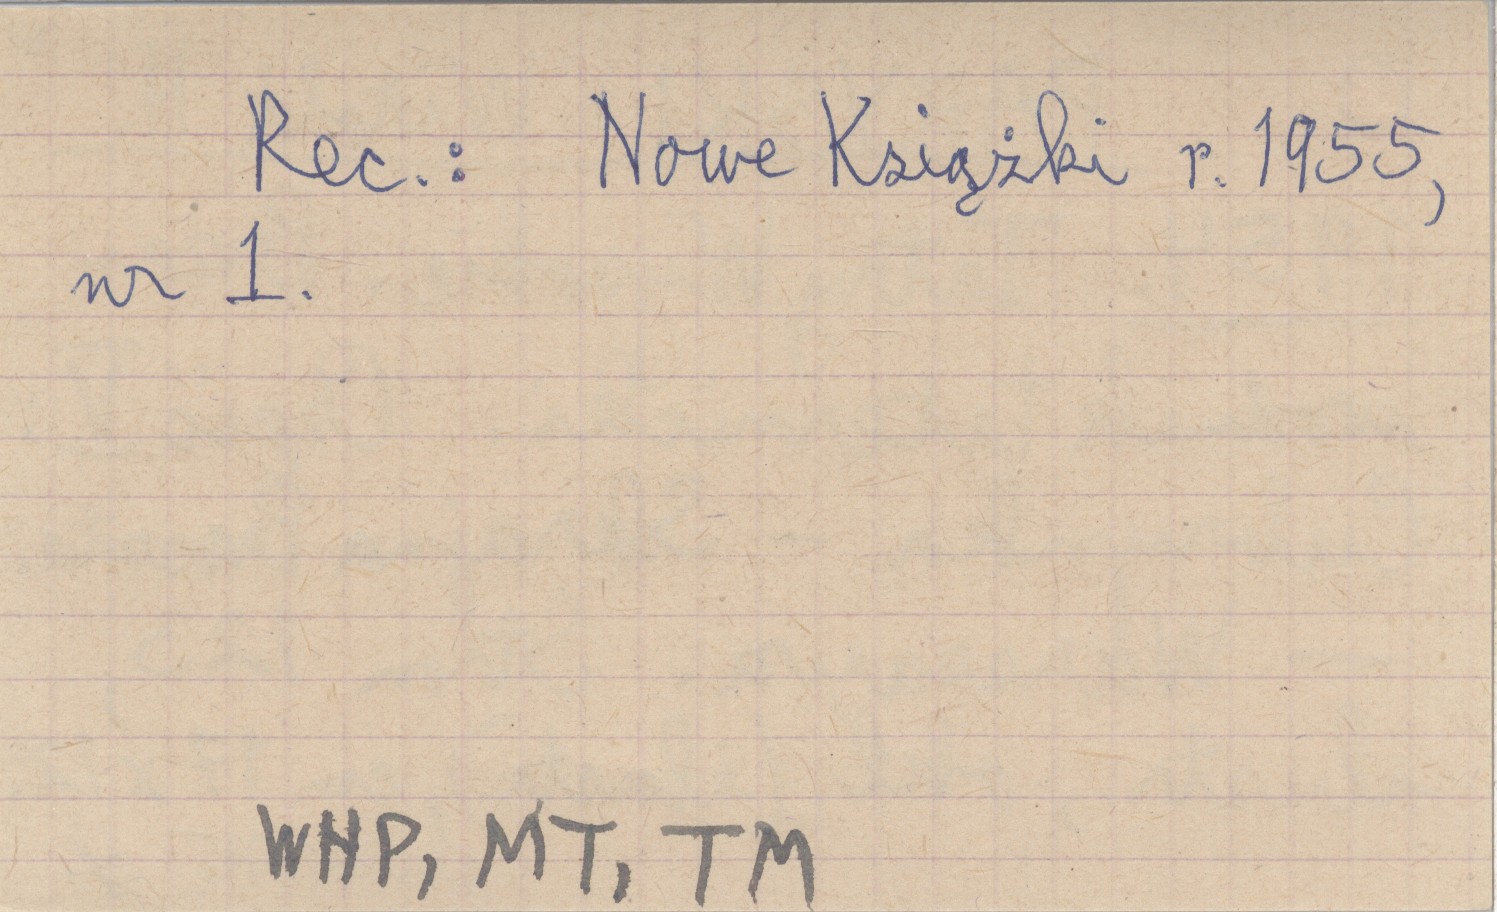 Rec.: Nowe Książki r. 1955,
nr 1.
WHP, MT, TM